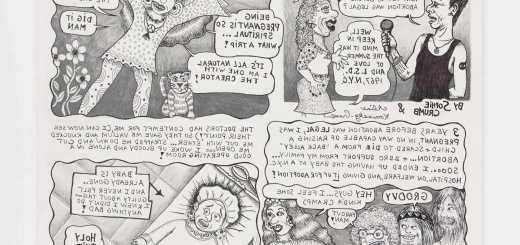 ABORTION WAS LEGAL?
WELL
KEEP IN
MIND IT WAS
THE SUMMER
OF LOVE
AND L.S.D.
1967, N.Y.C.
BY SOPHIE
CRUMB &
Aline
Kominsky-Crumb
BEING
PREGNANT IS SO
SPIRITUAL...
WHAT A TRIP!
IT'S ALL NATURAL
I AM ONE WITH
THE CREATOR!
DIG IT
MAN
3 YEARS BEFORE ABORTION WAS LEGAL, I WAS
PREGNANT, IN NO WAY CAPABLE OF RAISING A
CHILD & SCARED TO DIE FROM A "BACK ALLEY"
ABORTION... ZERO SUPPORT FROM MY FAMILY...
SOOOO I ENDED UP HAVING THE BABY AT A N.Y.C.
HOSPITAL ON WELFARE AND GIVING IT UP FOR ADOPTION!
THE DOCTORS HAD CONTEMPT FOR ME (I CAN NOW SEE
THEIR POINT!) SO THEY GAVE ME VALIUM AND KNOCKED
ME OUT WITH ETHER... STRAPPED ME DOWN AND CUT
ME OPEN... I WOKE UP BLOODY AND ALONE IN A
COLD OPERATING ROOM
GROOVY
HEY
GUYS... I FEEL SOME
KINDA CRAMPS
ABOUT
MAN
BABY IS
ALREADY GONE...
AND I NEVER FELT
GUILTY ABOUT IT
I KNEW I DIDN'T DO
ANYTHING BAD!
HOLY